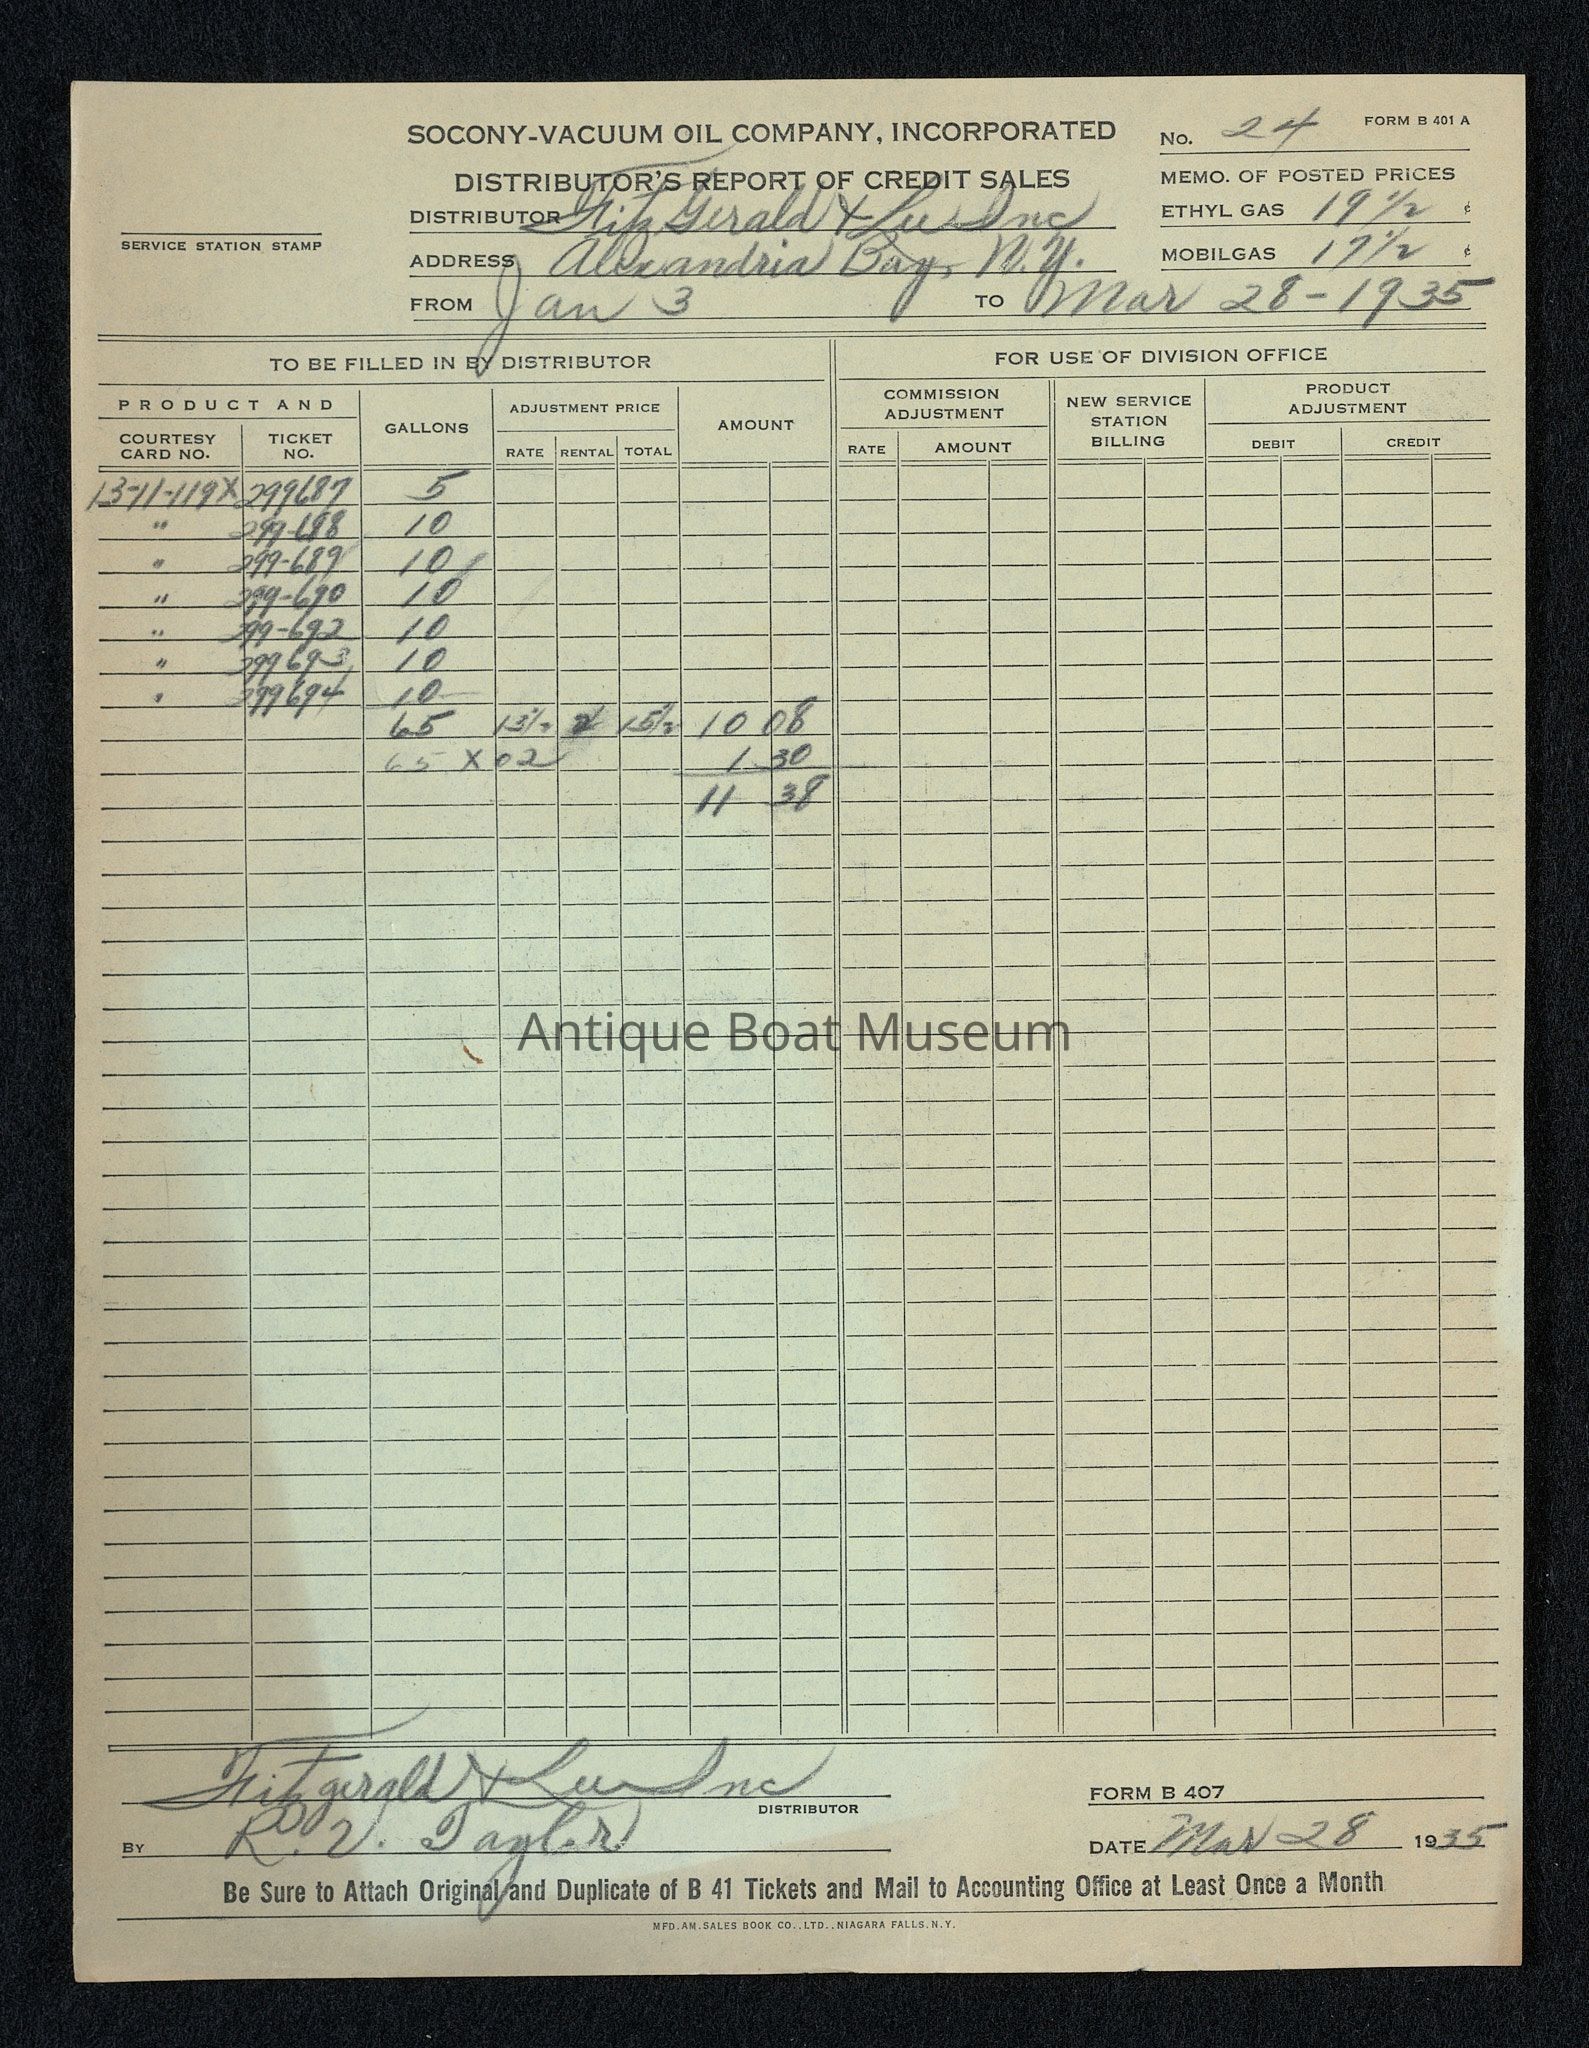 SOCONY-VACUUM OIL COMPANY, INCORPORATED
No. 24 FORM B 401 A
DISTRIBUTOR'S REPORT OF CREDIT SALES
MEMO. OF POSTED PRICES
DISTRIBUTOR FitzGerald & Lee Inc
ETHYL GAS 19 1/2 ¢
SERVICE STATION STAMP
ADDRESS Alexandria Bay, N.Y.
MOBILGAS 17 1/2 ¢
FROM Jan 3 TO Mar 28-1935
TO BE FILLED IN BY DISTRIBUTOR
FOR USE OF DIVISION OFFICE
PRODUCT AND
COURTESY CARD NO.
TICKET NO.
GALLONS
ADJUSTMENT PRICE
RATE RENTAL TOTAL
AMOUNT
COMMISSION ADJUSTMENT
RATE AMOUNT
NEW SERVICE STATION BILLING
PRODUCT ADJUSTMENT
DEBIT CREDIT
13-11-119X 299687 5
" 299-688 10
" 299-689 10
" 299-690 10
" 299-692 10
" 299693 10
" 299694 10
65 13 1/2 2 15 1/2 10 08
65 X 02 1 30
11 38
Antique Boat Museum
Fitzgerald & Lee Inc
DISTRIBUTOR
FORM B 407
BY R. V. Taylor
DATE Mar 28 1935
Be Sure to Attach Original and Duplicate of B 41 Tickets and Mail to Accounting Office at Least Once a Month
MFD. AM. SALES BOOK CO., LTD., NIAGARA FALLS, N.Y.